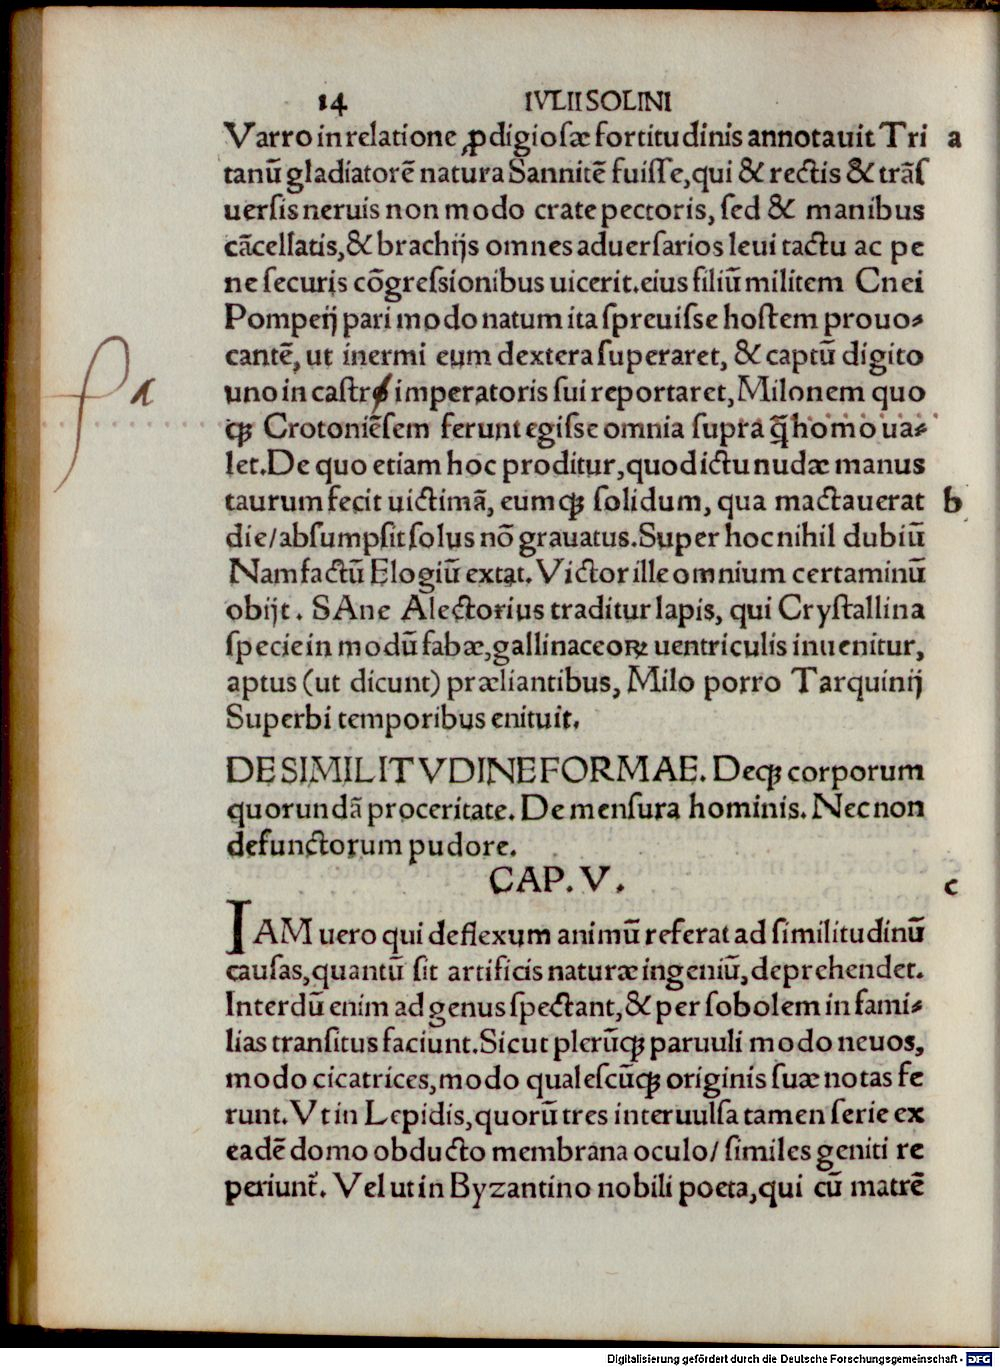 14 IVLII SOLINI
Varro in relatione ꝓdigioſæ fortitudinis annotauit Tri a
tanū gladiatorē natura Sannitē fuiſſe, qui & rectis & trāſ
uerſis neruis non modo crate pectoris, ſed & manibus
cācellatis, & brachijs omnes aduerſarios leui tactu ac pe
ne ſecuris cōgreſsionibus uicerit. eius filiū militem Cnei
Pompeij pari modo natum ita ſpreuiſse hoſtem prouo⸗
cantē, ut inermi eum dextera ſuperaret, & captū digito
uno in caſtro imperatoris ſui reportaret, Milonem quo
a
qꝫ Crotoniēſem ferunt egiſse omnia ſupra q̄ homo ua⸗
let. De quo etiam hoc proditur, quod ictu nudæ manus
taurum fecit uictimā, eumqꝫ ſolidum, qua mactauerat b
die/ abſumpſit ſolus nō grauatus. Super hoc nihil dubiū
Nam factū Elogiū extat. Victor ille omnium certaminū
obijt. SAne Alectorius traditur lapis, qui Cryſtallina
ſpecie in modū fabæ, gallinaceoꝝ uentriculis inuenitur,
aptus (ut dicunt) præliantibus, Milo porro Tarquinij
Superbi temporibus enituit.
DE SIMILITVDINE FORMAE. Deqꝫ corporum
quorundā proceritate. De menſura hominis. Necnon
defunctorum pudore.
CAP. V. c
IAM uero qui deflexum animū referat ad ſimilitudinū
cauſas, quantū ſit artificis naturæ ingeniū, deprehendet.
Interdū enim ad genus ſpectant, & per ſobolem in fami⸗
lias tranſitus faciunt. Sicut plerūqꝫ paruuli modo neuos,
modo cicatrices, modo qualeſcūqꝫ originis ſuæ notas fe
runt. Vt in Lepidis, quorū tres interuulſa tamen ſerie ex
eadē domo obducto membrana oculo/ ſimiles geniti re
periunt̄. Vel ut in Byzantino nobili poeta, qui cū matrē
Digitalisierung gefördert durch die Deutsche Forschungsgemeinschaft - DFG